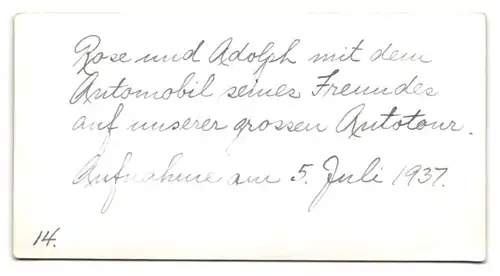 Rose und Adolph mit dem
Automobil seines Freundes
auf unserer grossen Autotour.
Aufnahme am 5. Juli 1937.
14.